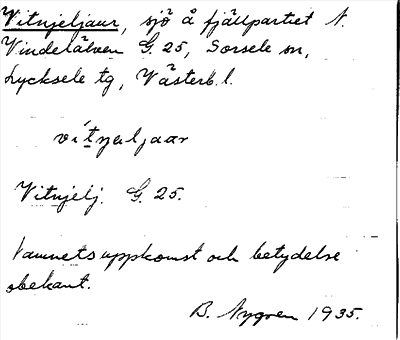 Vitnjeljaur, sjö å fjällpartiet N.
Vindelälven G. 25, Sorsele sn,
Lycksele tg, Västerb. l.
vítnjelj aar
Vitnjelj. G. 25.
Namnets uppkomst och betydelse
obekant.
B. Nygren 1935.